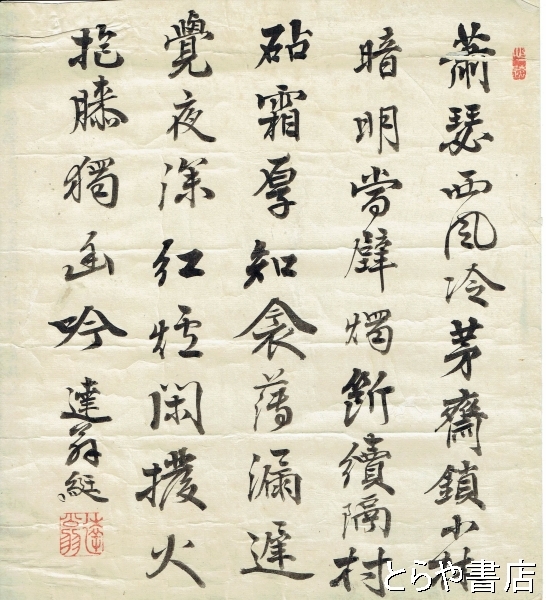 蕭瑟西風冷茅齋鎖小林
暗明當壁燭断續隔村
砧霜厚知衾薄漏遲
覺夜深紅爐閑撥火
抱膝獨幽吟
達翁綎
達翁
とらや書店